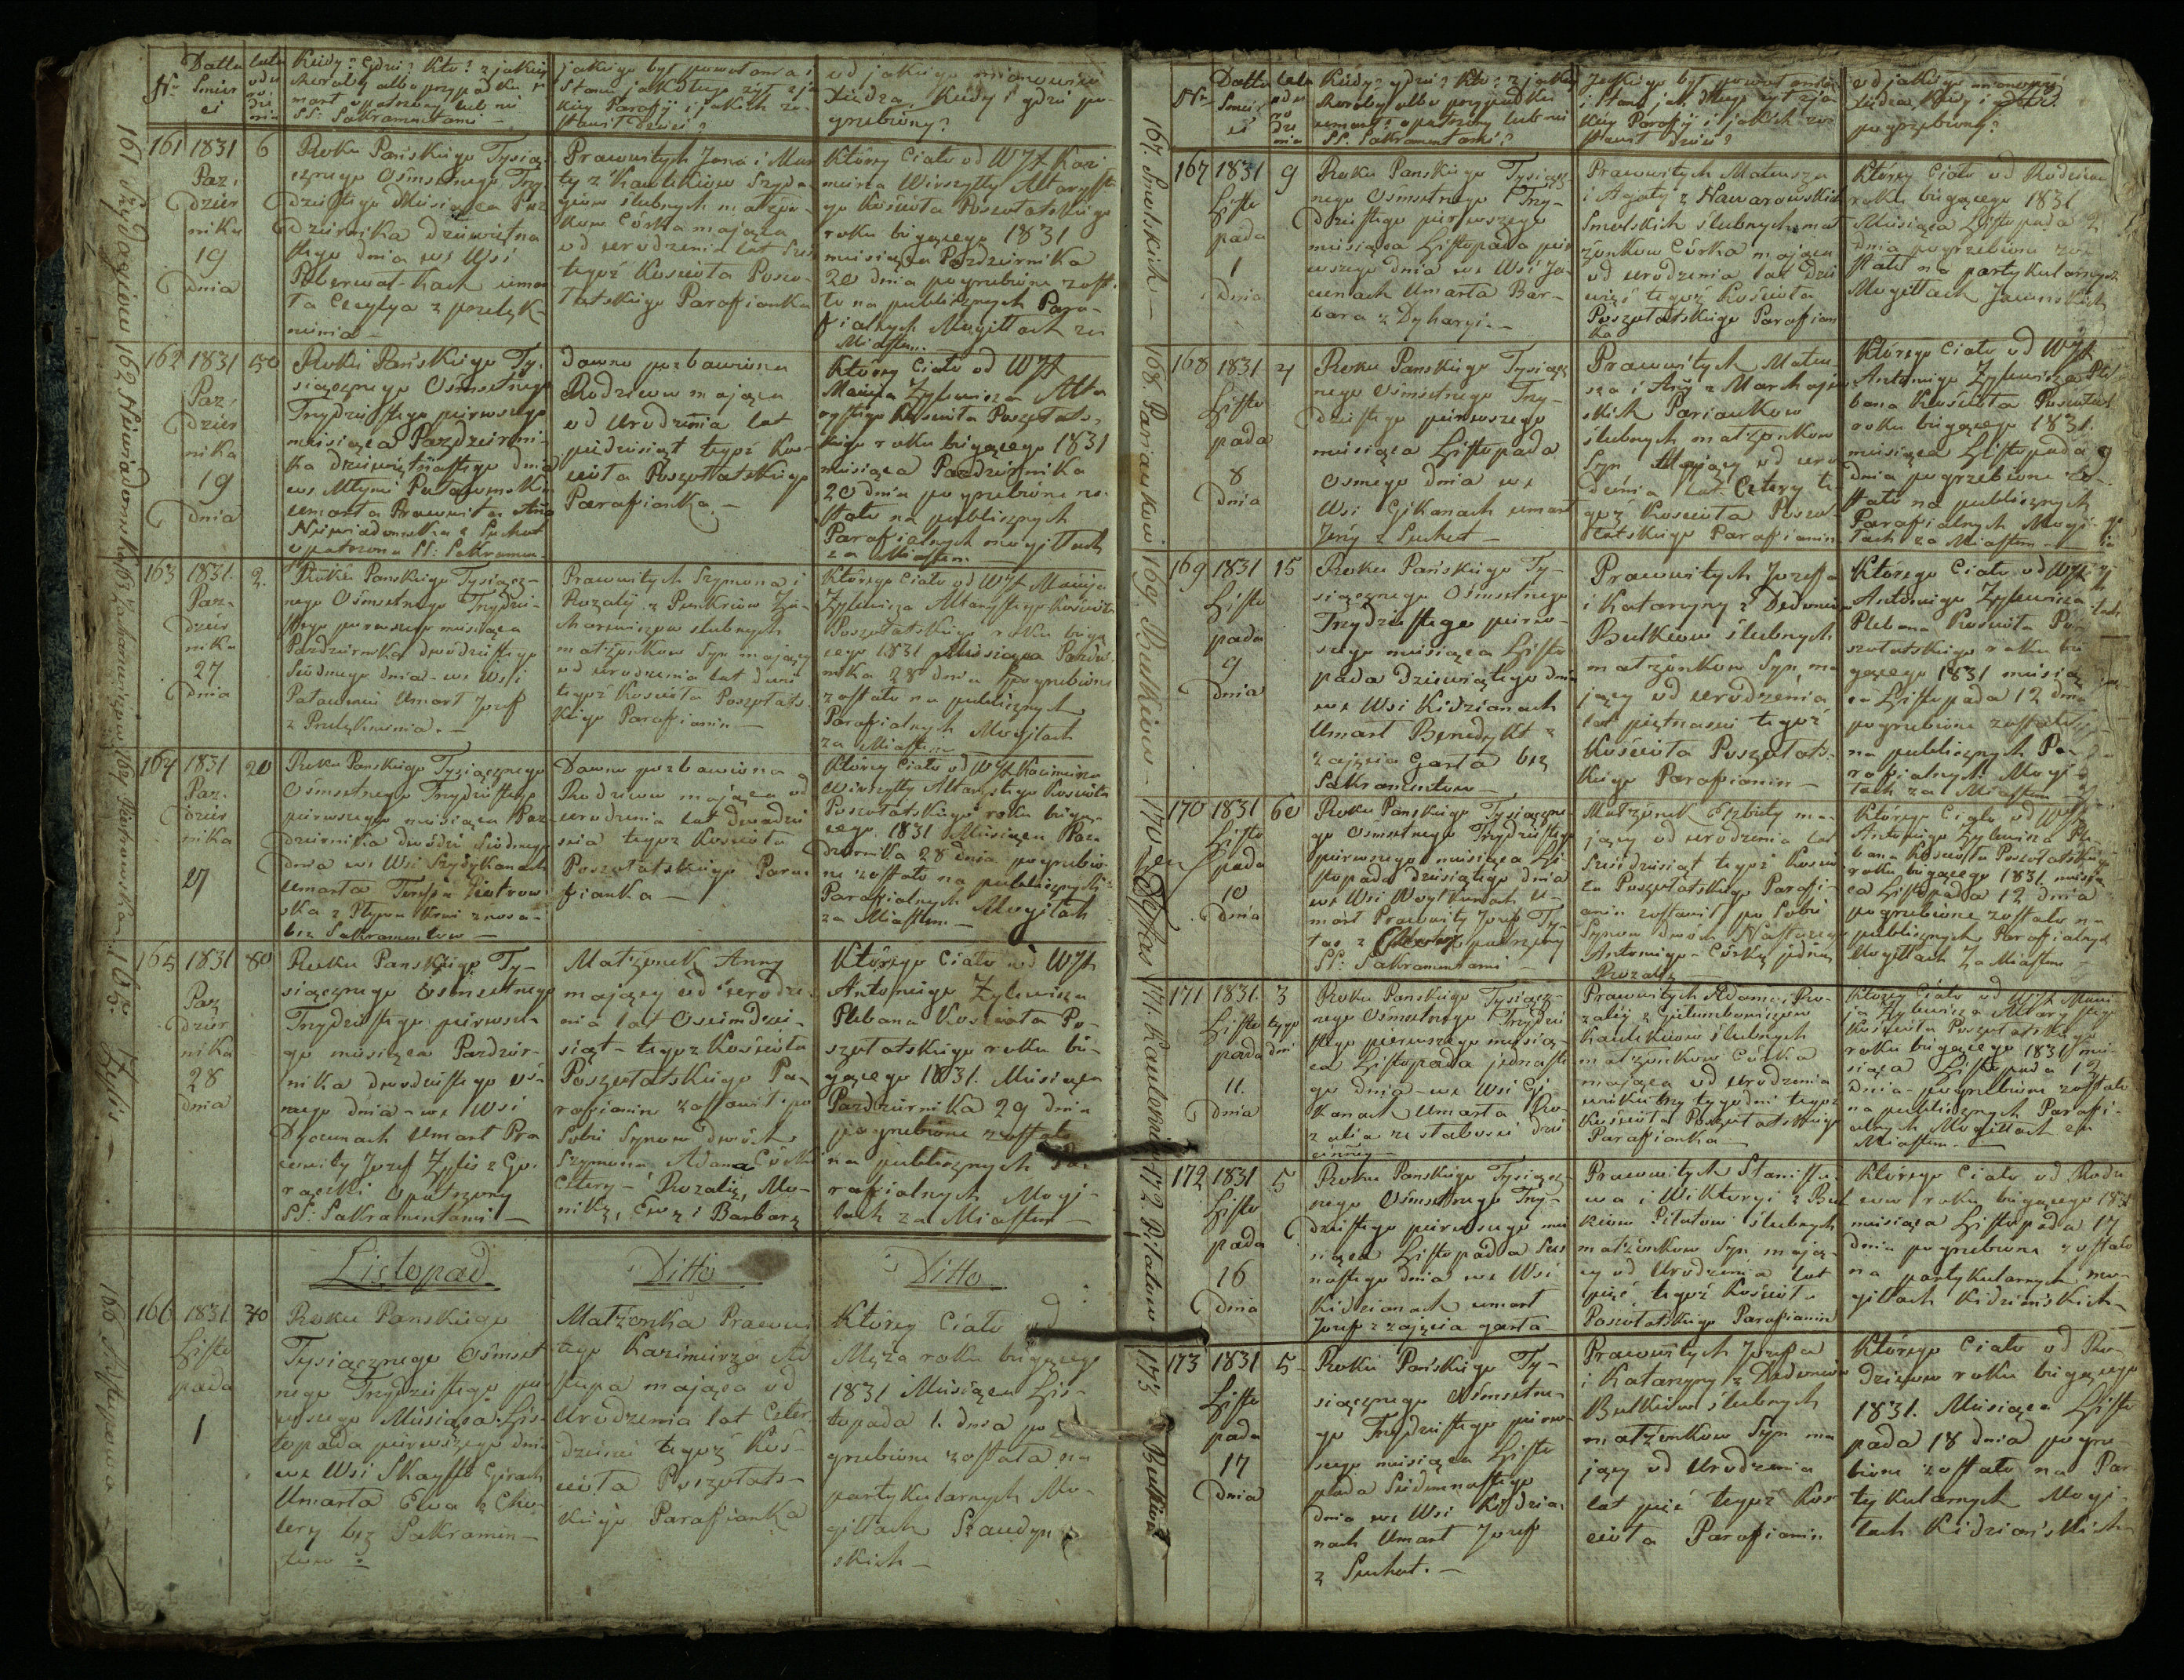 Nr
Datta
Śmier
ci
Kiedy? Gdzie? Kto? z jakiey
choroby albo przypadku u
marł opatrzony lub nie
SS: Sakramentami —
jakiego był powołania i
Stanu jak długo żył z ja
kiey Parafii i jakich zo-
stawił dzieci?
od jakiego mianowicie
Xiędza, kiedy i gdzie po-
grzebiony?
161
1831
Paz-
dzier
nika
19
dnia
6
Roku Pańskiego Tysiąc
cznego Ośmsetnego Trzy-
dziestego Miesiąca Paz
dziernika dziewiętna
stego dnia we Wsi
umar
ta Cecylya z przelęk-
nienia —
Prawowitych Jana i Mar
ty z
ślubnych małżon-
ków Córka mająca
od urodzenia lat Sześć
tegoż Kościoła Poszo-
łatskiego Parafianka
Którey Ciało od WJX Kazi
mierza Wirszyłły Altaryst
go Kościoła Poszołatskiego
roku biegącego 1831
miesiąca Pazdziernika
20 dnia pogrzebione zost.
to na publicznych Para-
fialnych Mogiłłach za
Miastem.
162
1831
Paz-
dzier
nika
19
dnia
50
Roku Pańskiego Ty-
siącznego Ośmsetnego
Trzydziestego pierwszego
miesiąca Pazdzierni-
ka dziewiętnastego dnia
we Młynie
umarła Prawowita Anna
z Suchot
opatrzona SS: Sakramen
Dawno pozbawiona
Rodziców mająca
od urodzenia lat
piędziesiąt tegoż Koś-
cioła Poszołatskiego
Parafianka. —
Którey Ciało od WJX
Macieja Żylewicza Alta
rystego Kościoła Poszołats-
kiego roku biegącego 1831
miesiąca Pazdziernika
20 dnia pogrzebione zo-
stało na publicznych
Parafialnych mogiłłach
za Miastem —
163
1831.
Paz-
dzier
nika
27
dnia
2.
Roku Pańskiego Tysiącz-
nego Ośmsetnego Trzydzie-
stego pierwszego miesiąca
Pazdziernika dwódziestego
Siódmego dnia we Wsi
umarł Jozef
z Przelęknienia. —
Prawowitych Szymona i
Rozalij z
ślubnych
małżonków Syn mający
od urodzenia lat dwa
tegoż Kościoła Poszołats-
kiego Parafianin —
Którego Ciało od WJX Macieja
Żylewicza Altarystego Kościoła
Poszołatskiego roku bieg
cego 1831 Miesiąca Pazdzie-
rnika 28 dnia pogrzebione
zostało na publicznych
Parafialnych Mogiłach
za Miastem
164
1831
Paz-
dzier
nika
27
20
Roku Pańskiego Tysiącznego
Ośmsetnego Trzydziestego
pierwszego miesiąca Paz-
dziernika dwódziestego Siódmego
dnia we Wsi
umarła Teressa Piotrow-
ska z Pływu Krwi z nosa
bez Sakramentow —
Dawno pozbawiona
Rodziców mająca od
urodzenia lat dwadzie
scia tegoż Kościoła
Poszołatskiego Para-
fianka —
Którey Ciało od WJX Kazimierza
Wirszyłły Altarystego Kościoła
Poszołatskiego roku biegą-
cego 1831 Miesiąca Paz-
dziernika 28 dnia pogrzebio-
ne zostało na publicznych
Parafialnych Mogiłach
za Miastem —
165
1831
Paz
dzier
nika
28
dnia
80
Roku Pańskiego Ty-
siącznego Ośmsetnego
Trzydziestego pierwsze-
go miesiąca Pazdzier-
nika dwudziestego ós-
mego dnia we Wsi
umarł Pra
cowity Jozef Żylis z Go-
rączki opatrzony
SS: Sakramentami —
Małżonek Anny
mający od urodze-
nia lat Osiemdzie-
siąt tegoż Kościoła
Poszołatskiego Pa-
rafianin zostawił po
Sobie Synów dwóch
Szymona, Adama Córki
Cztery – Rozalię, Mo-
nikę, Ewę i Barbarę
Którego Ciało od WJX
Antoniego Żylewicza
Plebana Kościoła Po-
szołatskiego roku bie-
gącego 1831. Miesiąca
Pazdziernika 29 dnia
pogrzebione zostało
na publicznych Pa-
rafialnych Mogi-
łach za Miastem —
Listopad
Ditto
Ditto
166
1831.
Listo
pada
1
40
Roku Pańskiego
Tysiącznego Ośmset
nego Trzydziestego pier
wszego Miesiąca Lis-
topada pierwszego dnia
we Wsi
Umarła Ewa z Cho-
lery bez Sakramen-
tów —
Małżonka Pracowi
tego Kazimierza
mająca od
Urodzenia lat Czter
dzieści tegoż Koś-
cioła Poszołats-
kiego Parafianka
Którey Ciało od
Męża roku biegącego
1831 Miesiąca Lis-
topada 1. dnia po
grzebione zostało na
partykularnych Mo-
giłłach
skich —
Nr
Datta
Śmier
ci
Kiedy? gdzie? Kto? z jakiey
choroby albo przypadku
umarł? opatrzony lub nie
SS. Sakramentami?
Jakiego był powołania
i Stanu jak długo żył z ja
kiey Parafij i jakich zo-
stawił dzieci?
od jakiego mianowicie
Xiędza, kiedy i gdzie
pogrzebiony?
167
1831
Listo
pada
1
dnia
9
Roku Pańskiego Tysiącz-
nego Ośmsetnego Trzy-
dziestego pierwszego
miesiąca Listopada pier
wszego dnia we Wsi Ja-
wnach Umarła Bar-
bara z Dyharyi —
Prawowitych Mateusza
i Agaty z Nawarowskich
Smolskich ślubnych mał
żonków Córka mająca
od urodzenia lat dzie
więć tegoż Kościoła
Poszołatskiego Parafian
ka
Którey Ciało od Rodziców
roku biegącego 1831
Miesiąca Listopada 2
dnia pogrzebione zo
stało na partykularnych
Mogiłłach
168
1831
Listo
pada
8
dnia
4
Roku Pańskiego Tysiącz
nego Ośmsetnego Trzy-
dziestego pierwszego
miesiąca Listopada
Osmego dnia we
Wsi Gikanach umarł
Jerzy z Suchot —
Prawowitych Mateu
sza i Anny z
skich
ślubnych małżonków
Syn Mający od uro
dzenia lat Cztery te-
goż Kościoła Poszo-
łatskiego Parafianin
Którego Ciało od WJX
Antoniego Żylewicza Ple
bana Kościoła Poszołat
roku biegącego 1831.
miesiąca Listopada 9
dnia pogrzebione zo-
stało na publicznych
Parafialnych Mogi-
łach za Miastem —
169
1831
Listo
pada
9
dnia
15
Roku Pańskiego Ty-
siącznego Ośmsetnego
Trzydziestego pierw-
szego miesiąca Listo
pada dziewiątego dnia
we Wsi Kidzianach
Umarł Benedykt z
zajęcia Garła bez
Sakramentow —
Prawowitych Jozefa
i Katarzyny z
Butkiow ślubnych
małżonków Syn ma
jący od urodzenia
lat piętnaście tegoż
Kościoła Poszołats-
kiego Parafianin —
Którego Ciało od WJX
Antoniego Żylewicza
Plebana Kościoła Po-
szołatskiego roku bie
gącego 1831 miesią
ca Listopada 12 dnia
pogrzebione zostało
na publicznych Pa-
rafialnych Mogi-
łach za Miastem —
170
1831
Listo
pada
10
dnia
60
Roku Pańskiego Tysiączne-
go Ośmsetnego Trzydziestego
pierwszego miesiąca Li-
stopada dziesiątego dnia
we Wsi u-
marł Pracowity Jozef
opatrzony
SS: Sakramentami —
Małżonek Elzbiety ma-
jący od urodzenia lat
Sześćdziesiąt tegoż Kościo
ła Poszołatskiego Parafi-
anin zostawił po Sobie
Synów dwóch
Antoniego – Córkę jednę
Rozalię —
Którego Ciało od WJX
Antoniego Żylewicza Ple
bana Kościoła Poszołatskiego
roku biegącego 1831. miesią
ca Listopada 12 dnia
pogrzebione zostało na
publicznych Parafialnych
Mogiłłach za Miastem
171
1831.
Listo
pada
11.
dnia
3
tygo
dni
Roku Pańskiego Tysiącz-
nego Ośmsetnego Trzydzie
stego pierwszego miesią-
ca Listopada jednaste
go dnia we Wsi Gi-
kanach Umarła Ro-
zalia ze słabości dzie
cinney —
Prawowitych Adama i Ro-
zalij z
ślubnych
małżonków Córka
mająca od urodzenia
wieku trzy tygodni tegoż
Kościoła Poszołatskiego
Parafianka —
Którey Ciało od WJX Macie
ja Żylewicza Altarystego
Kościoła Poszołatskiego
roku biegącego 1831 mie
siąca Listopada 12
dnia – pogrzebione zostało
na publicznych Parafi-
alnych Mogiłłach za
Miastem —
172
1831
Listo
pada
16
dnia
5
Roku Pańskiego Tysiącz-
nego Ośmsetnego Trzy-
dziestego pierwszego mie
siąca Listopada Szes
nastego dnia we Wsi
Kidzianach umarł
Jozef z zajęcia garła —
Prawowitych Stanisła-
wa i Wiktoryi z But
kiow Pitatow ślubnych
małżonków Syn mają-
cy od Urodzenia lat
pięć tegoż Kościoła
Poszołatskiego Parafianin
Którego Ciało od Rodzi
cow roku biegącego 1831
miesiąca Listopada 17
dnia pogrzebione zostało
na partykularnych mo-
giłłach
173
1831
Listo
pada
17
dnia
5
Roku Pańskiego Ty-
siącznego Ośmsetne-
go Trzydziestego pierw-
szego miesiąca Listo
pada Siedemnastego
dnia we Wsi Kidzia-
nach Umarł Jozef
z Suchot. —
Prawowitych Jozefa
i Katarzyny z
Butkiow ślubnych
małżonków Syn ma
jący od Urodzenia
lat pięć tegoż Koś
cioła Parafianin
Którego Ciało od Ro-
dziców roku biegącego
1831. Miesiąca Listo
pada 18 dnia pogrze
bione zostało na Par
tykularnych Mogi-
łach Kidziańskich